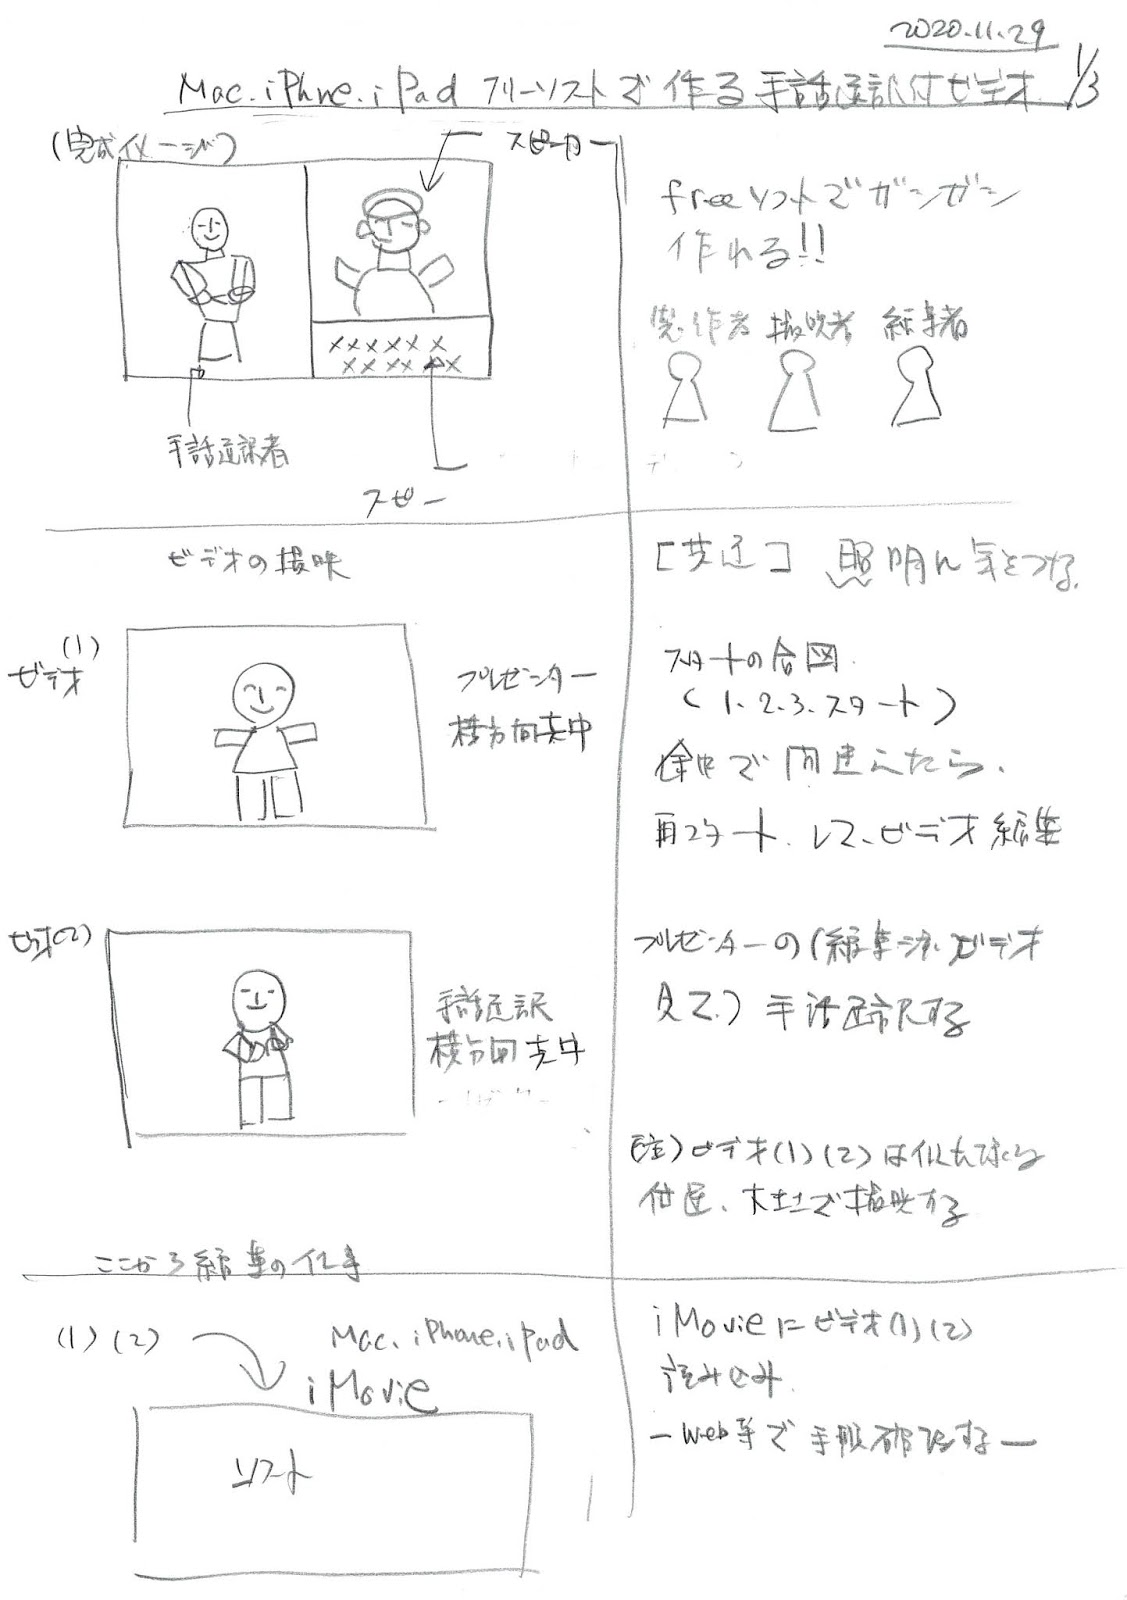 2020.11.29
1/3
Mac.iPhne.iPad フリーソストで作る手話通訳付ビデオ
(完成イメージ)
スピーカー
手話通訳者
スピー
freeソフトでガンガン
作れる!!
製作者 撮映者 編集者
ビデオの撮映
[共通] 照明に気をつける.
(1)
ビデオ
プレゼンター
横方向真中
スタートの合図.
(1.2.3.スタート)
途中で間違えたら、
再スタート.して、ビデオ編集
ビデオ(2)
手話通訳
横方向真中
プレゼンターの(編集済.ビデオ
見て.)手話通訳する
(注)ビデオ(1)(2)は似た
位置、大きさで撮映する
ここから編集の仕事
(1)(2)
Mac.iPhone.iPad
iMovie
ソフト
iMovieにビデオ(1)(2)
読み込み.
ーWeb等で手順確認するー